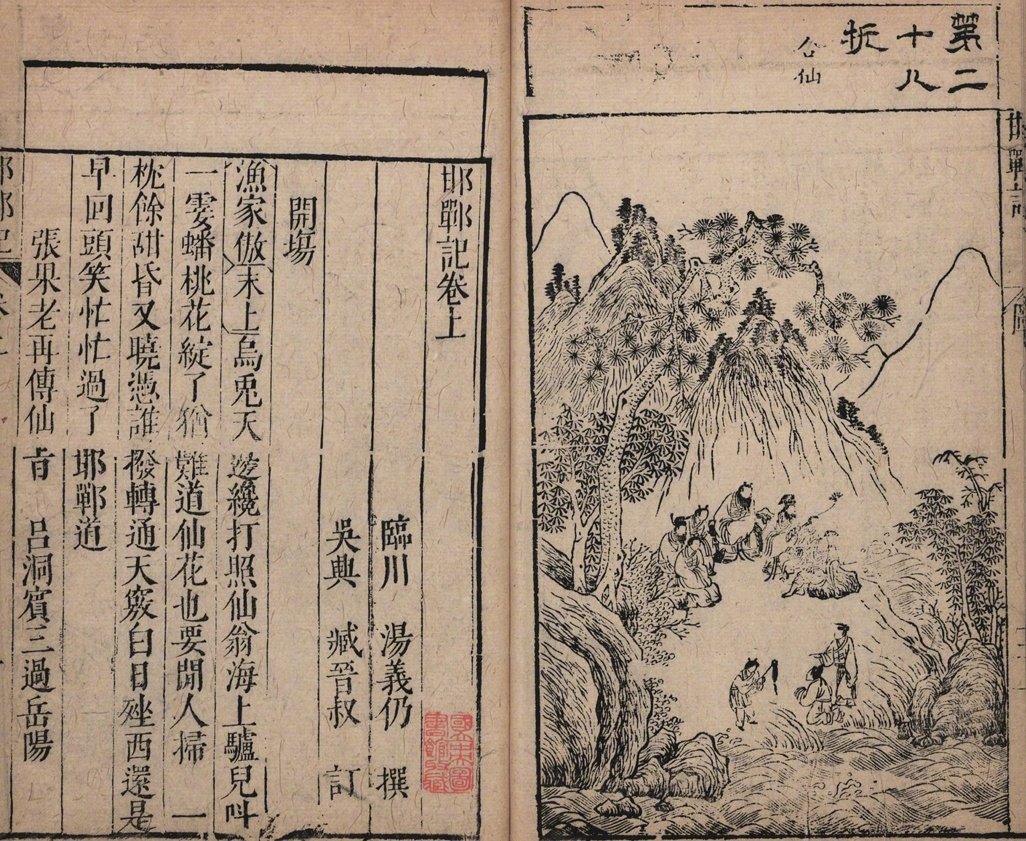 邯鄲記
第二
十八
折
合仙
邯鄲記卷上
臨川 湯義仍 撰
吳興 臧晉叔 訂
開場
漁家傲末上烏兔天邊纔打照仙翁海上驢兒呌
一霎蟠桃花綻了猶難道仙花也要閒人掃 一
枕餘甜昏又曉憑誰撥轉通天竅白日矬西還是
早回頭笑忙忙過了邯鄲道
張果老再傳仙旨 呂洞賓三過岳陽